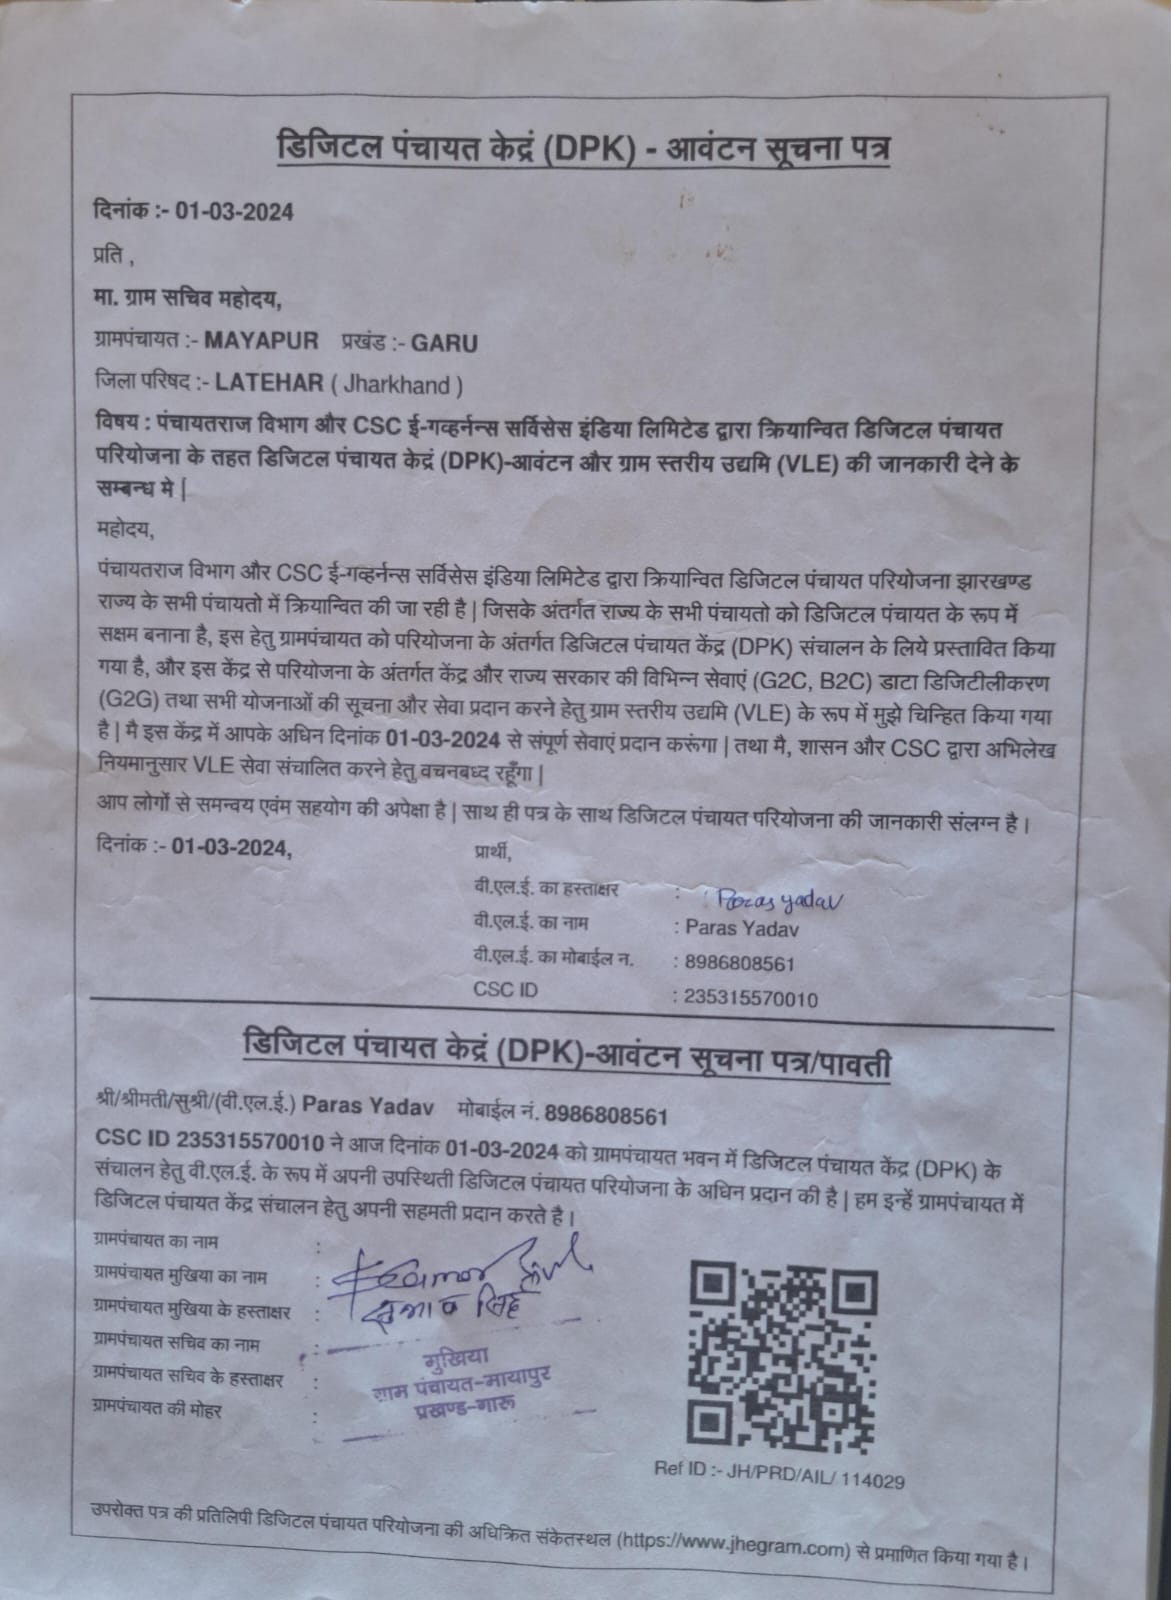 डिजिटल पंचायत केद्रं (DPK) - आवंटन सूचना पत्र
दिनांक :- 01-03-2024
प्रति ,
मा. ग्राम सचिव महोदय,
ग्रामपंचायत :- MAYAPUR प्रखंड :- GARU
जिला परिषद :- LATEHAR ( Jharkhand )
विषय : पंचायतराज विभाग और CSC ई-गव्हर्नन्स सर्विसेस इंडिया लिमिटेड द्वारा क्रियान्वित डिजिटल पंचायत
परियोजना के तहत डिजिटल पंचायत केद्रं (DPK)-आवंटन और ग्राम स्तरीय उद्यमि (VLE) की जानकारी देने के
सम्बन्ध मे |
महोदय,
पंचायतराज विभाग और CSC ई-गव्हर्नन्स सर्विसेस इंडिया लिमिटेड द्वारा क्रियान्वित डिजिटल पंचायत परियोजना झारखण्ड
राज्य के सभी पंचायतो में क्रियान्वित की जा रही है | जिसके अंतर्गत राज्य के सभी पंचायतो को डिजिटल पंचायत के रूप में
सक्षम बनाना है, इस हेतु ग्रामपंचायत को परियोजना के अंतर्गत डिजिटल पंचायत केंद्र (DPK) संचालन के लिये प्रस्तावित किया
गया है, और इस केंद्र से परियोजना के अंतर्गत केंद्र और राज्य सरकार की विभिन्न सेवाएं (G2C, B2C) डाटा डिजिटीलीकरण
(G2G) तथा सभी योजनाओं की सूचना और सेवा प्रदान करने हेतु ग्राम स्तरीय उद्यमि (VLE) के रूप में मुझे चिन्हित किया गया
है | मै इस केंद्र में आपके अधिन दिनांक 01-03-2024 से संपूर्ण सेवाएं प्रदान करूंगा | तथा मै, शासन और CSC द्वारा अभिलेख
नियमानुसार VLE सेवा संचालित करने हेतु वचनबध्द रहूँगा |
आप लोगों से समन्वय एवंम सहयोग की अपेक्षा है | साथ ही पत्र के साथ डिजिटल पंचायत परियोजना की जानकारी संलग्न है |
दिनांक :- 01-03-2024,
प्रार्थी,
वी.एल.ई. का हस्ताक्षर : Paras yadav
वी.एल.ई. का नाम : Paras Yadav
वी.एल.ई. का मोबाईल न. : 8986808561
CSC ID : 235315570010
डिजिटल पंचायत केद्रं (DPK)-आवंटन सूचना पत्र/पावती
श्री/श्रीमती/सुश्री/(वी.एल.ई.) Paras Yadav मोबाईल नं. 8986808561
CSC ID 235315570010 ने आज दिनांक 01-03-2024 को ग्रामपंचायत भवन में डिजिटल पंचायत केंद्र (DPK) के
संचालन हेतु वी.एल.ई. के रूप में अपनी उपस्थिती डिजिटल पंचायत परियोजना के अधिन प्रदान की है | हम इन्हें ग्रामपंचायत में
डिजिटल पंचायत केंद्र संचालन हेतु अपनी सहमती प्रदान करते है |
ग्रामपंचायत का नाम :
ग्रामपंचायत मुखिया का नाम :
ग्रामपंचायत मुखिया के हस्ताक्षर : सुभाष सिंह
ग्रामपंचायत सचिव का नाम :
ग्रामपंचायत सचिव के हस्ताक्षर :
ग्रामपंचायत की मोहर :
मुखिया
ग्राम पंचायत-मायापुर
प्रखण्ड-गारू
Ref ID :- JH/PRD/AIL/ 114029
उपरोक्त पत्र की प्रतिलिपी डिजिटल पंचायत परियोजना की अधिक्रित संकेतस्थल (https://www.jhegram.com) से प्रमाणित किया गया है |